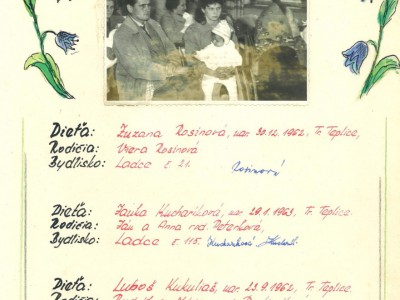 Dieťa: Zuzana Rosinová, nar. 30.12.1962, Tr. Teplice,
Rodičia: Viera Rosinová
Bydlisko: Ladce č. 21. Rosinová
Dieťa: Janka Kucharíková, nar. 29.1.1963, Tr. Teplice,
Rodičia: Ján a Anna rod. Peterková,
Bydlisko: Ladce č. 115. Kucharíková
Dieťa: Luboš Kukuliaš, nar. 23.9.1962, Tr. Teplice,